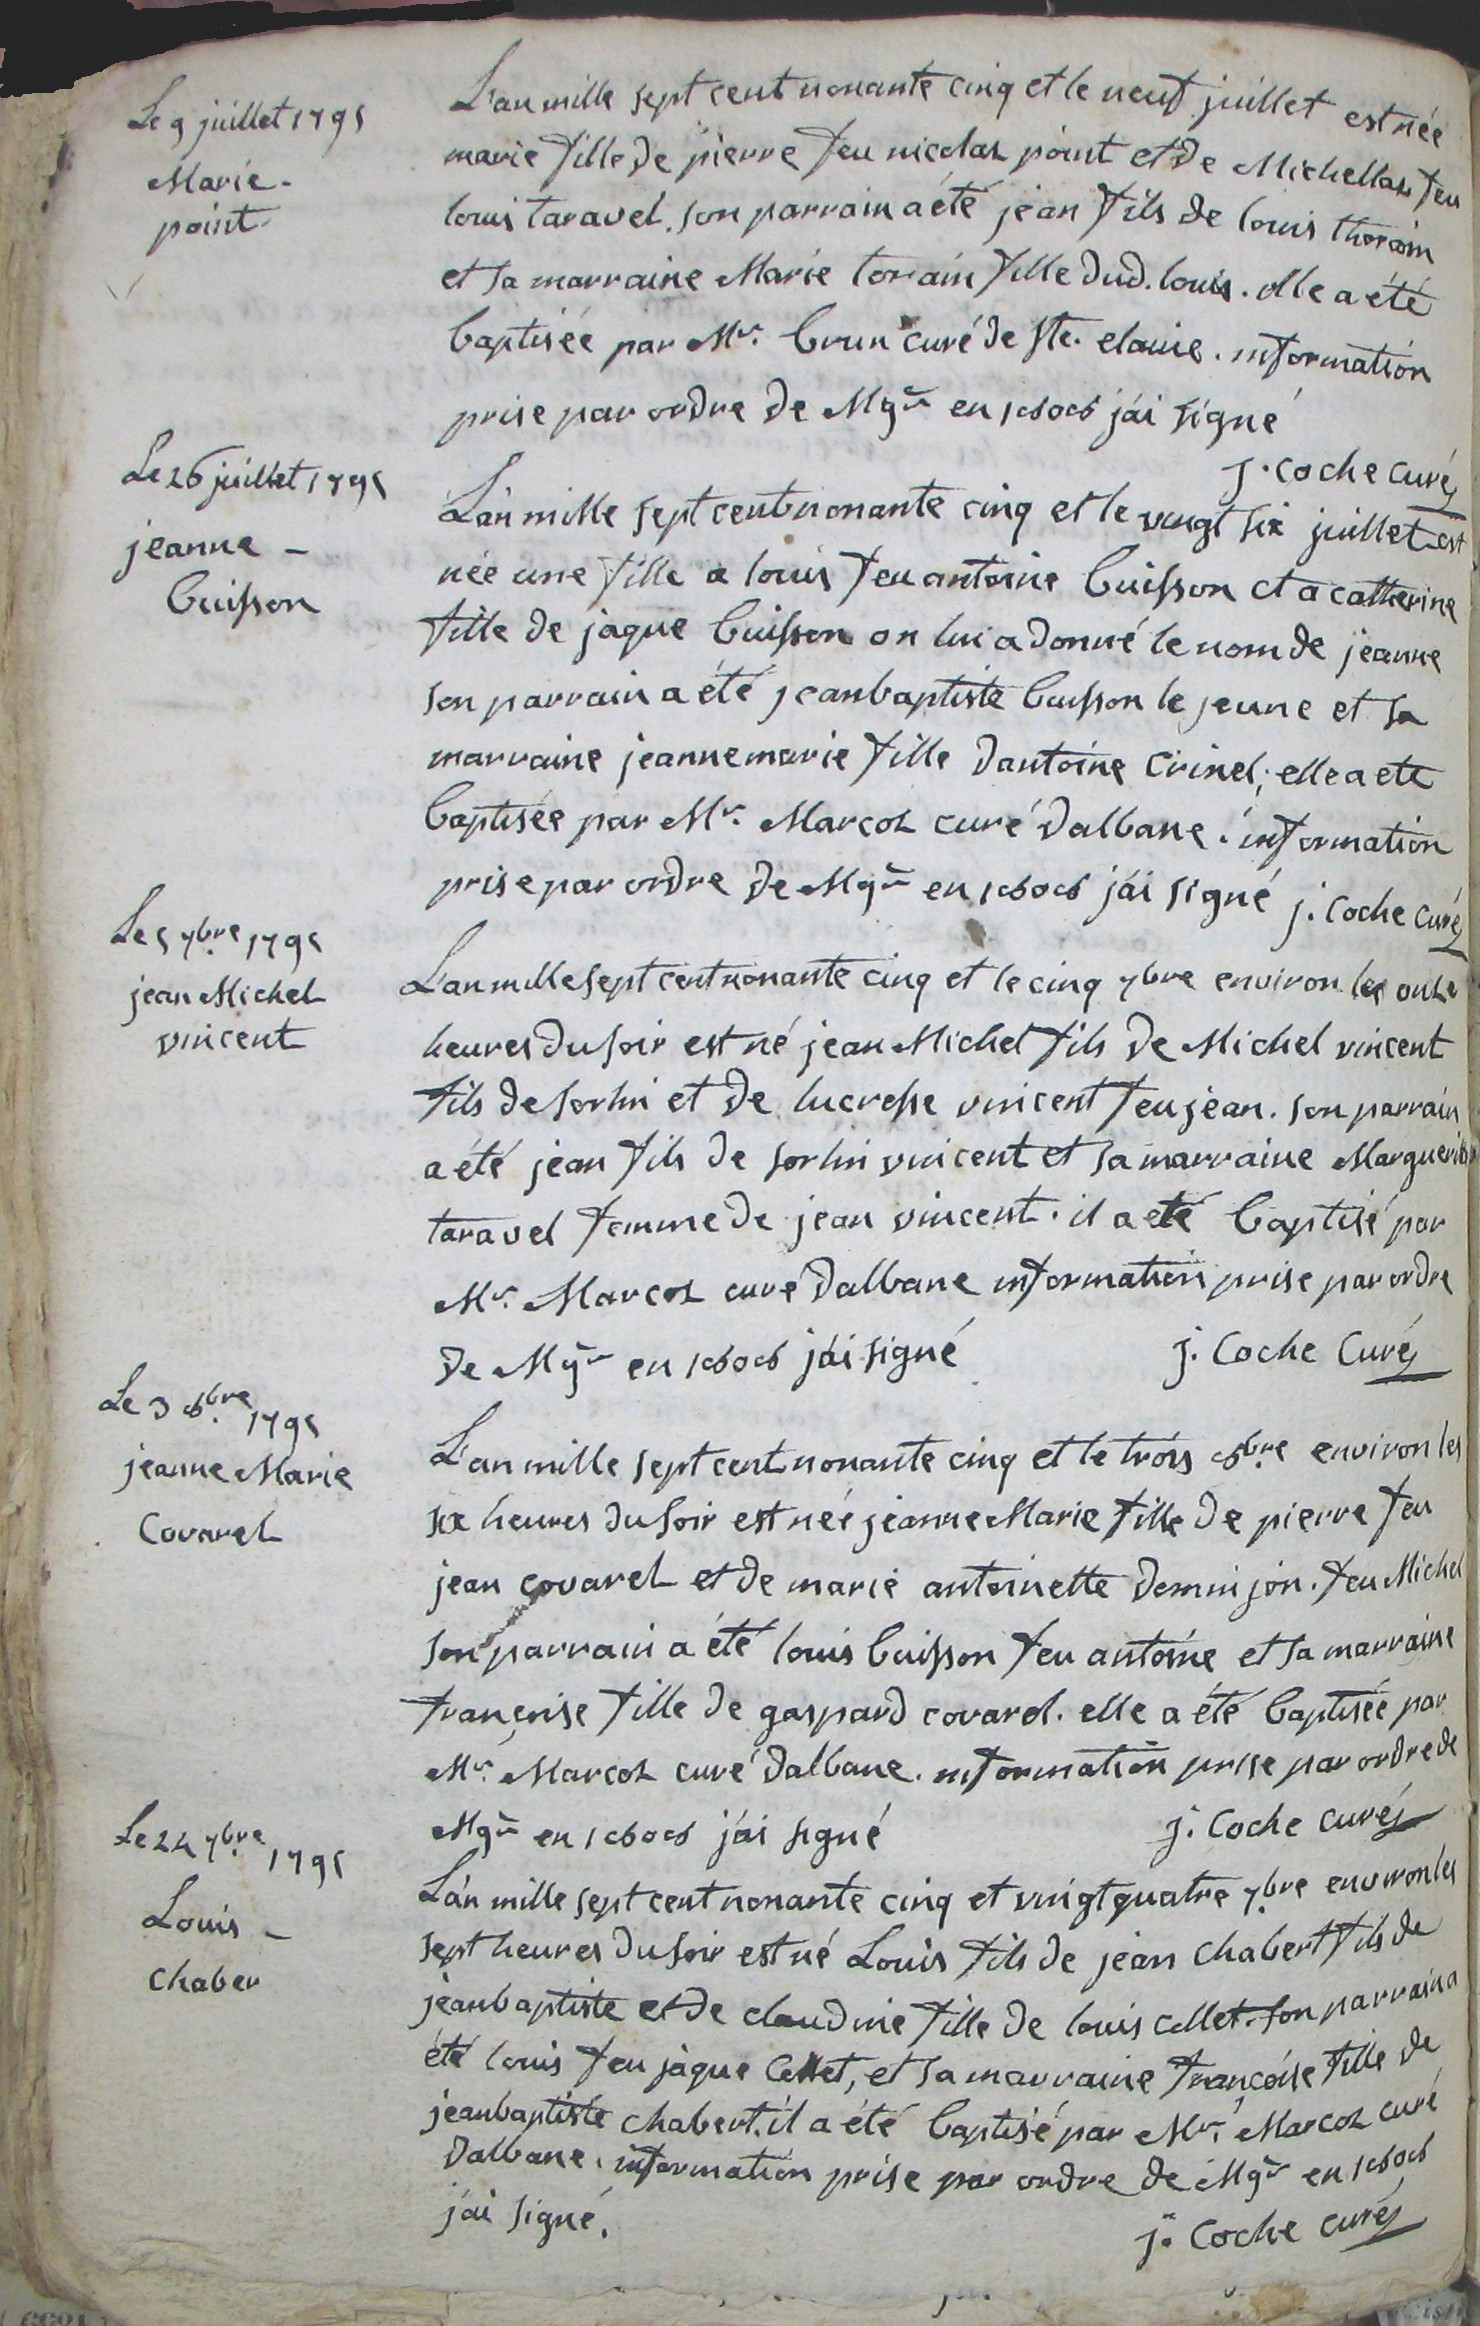 Le 9 juillet 1795
Marie
point
L'an mille sept cent nonante cinq et le neuf juillet est née
marie fille de pierre feu nicolas point et de Michellaz feu
louis taravel. son parrain a été jean fils de louis thorain
et sa marraine Marie torain fille dud. louis. elle a été
baptisée par Mr. brun curé de ste. . information
prise par ordre de Mgr en 1808 j'ai signé
J. Coche curé
Le 26 juillet 1795
jeanne
buisson
L'an mille sept cent nonante cinq et le vingt six juillet est
née une fille a louis feu antoine buisson et a catherine
fille de jaque buisson on lui a donné le nom de jeanne
son parrain a été jeanbaptiste buisson le jeune et sa
marraine jeannemarie fille dantoine Crinel; elle a ete
baptisée par Mr. Marcoz curé dalbane. information
prise par ordre de Mgr en 1808 j'ai signé j. Coche curé
Le 5 7bre 1795
jean Michel
vincent
L'an mille sept cent nonante cinq et le cinq 7bre environ les onze
heures du soir est né jean Michel fils de Michel vincent
fils de sorlin et de lucresse vincent feu jean. son parrain
a été jean fils de sorlin vincent et sa marraine Marguerite
taravel femme de jean vincent. il a eté baptisé par
Mr. Marcoz curé dalbane information prise par ordre
de Mgr en 1808 j'ai signé j. Coche Curé
Le 3 8bre 1795
jeanne Marie
Covarel
L'an mille sept cent nonante cinq et le trois 8bre environ les
six heures du soir est née jeanne Marie fille de pierre feu
jean covarel et de marie antoinette deminjon. feu Michel
son parrain a été louis buisson feu antoine et sa marraine
françoise fille de gaspard covarel. elle a été baptisée par
Mr. Marcoz curé dalbane. information prise par ordre de
Mgr en 1808 j'ai signé j. Coche curé
Le 24 7bre 1795
Louis
chaber
L'an mille sept cent nonante cinq et vingt quatre 7bre environ les
sept heures du soir est né Louis fils de jean chabert fils de
jeanbaptiste et de claudine fille de louis collet. son parrain a
été louis feu jaque Collet, et sa marraine françoise fille de
jeanbaptiste chabert. il a été baptisé par Mr. Marcoz curé
dalbane. information prise par ordre de Mgr en 1808
j'ai signé. j. Coche curé